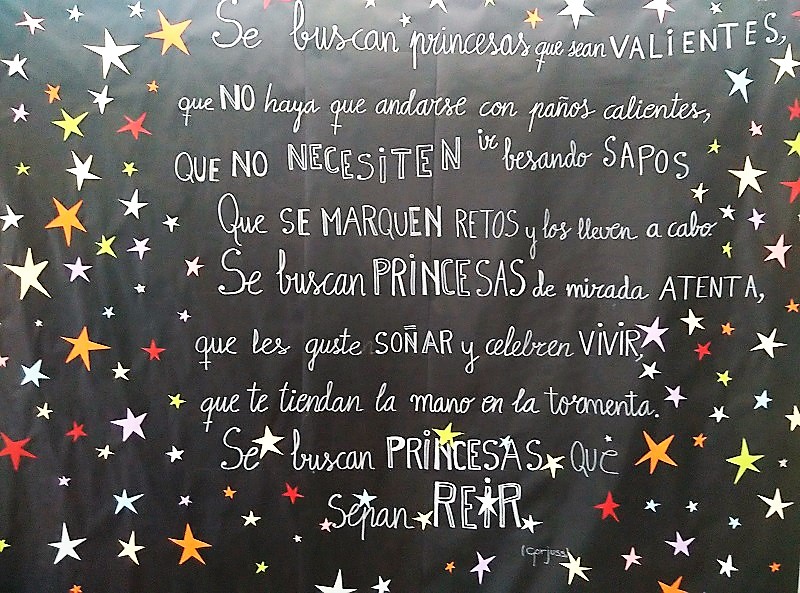 Se buscan princesas que sean VALIENTES,
que NO haya que andarse con paños calientes,
QUE NO NECESiTEN ir besando SAPOS
Que SE MARQUEN RETOS y los lleven a cabo.
Se buscan PRINCESAS de mirada ATENTA,
que les guste SOÑAR y celebren VIVIR,
que te tiendan la mano en la tormenta.
Se buscan PRiNCESAS QUE
sepan REiR.
(Gorjuss)